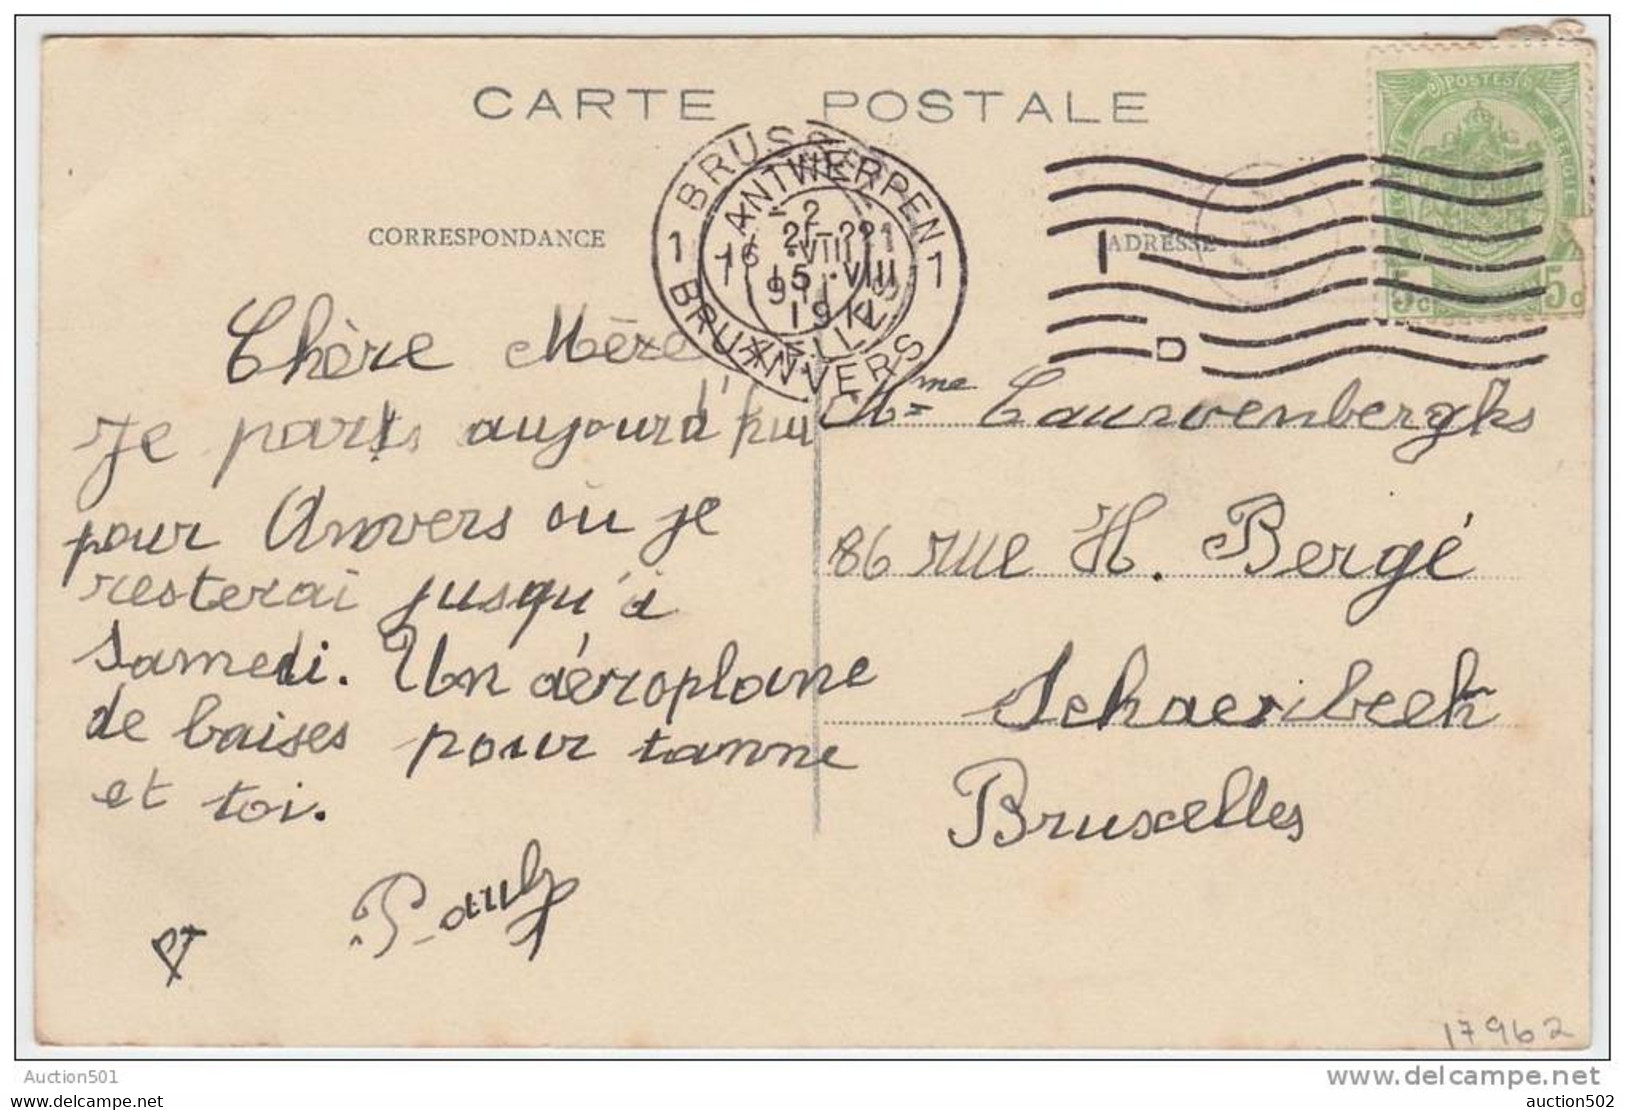 CARTE POSTALE
CORRESPONDANCE
ADRESSE
POSTES
BELGIQUE
5c 5c
1 BRUSSEL
ANTWERPEN
1 1
16 VIII
21-22
15 VIII
1911
BRUXELLES
ANVERS
Chère Mère
Je pars aujourd'hui
pour Anvers où je
resterai jusqu'à
samedi. Un aéroplane
de baises pour tanne
et toi.
Pauly
Mme Cauwenberghs
86 rue H. Bergé
Schaerbeek
Bruxelles
17962
Auction501
www.delcampe.net
auction502